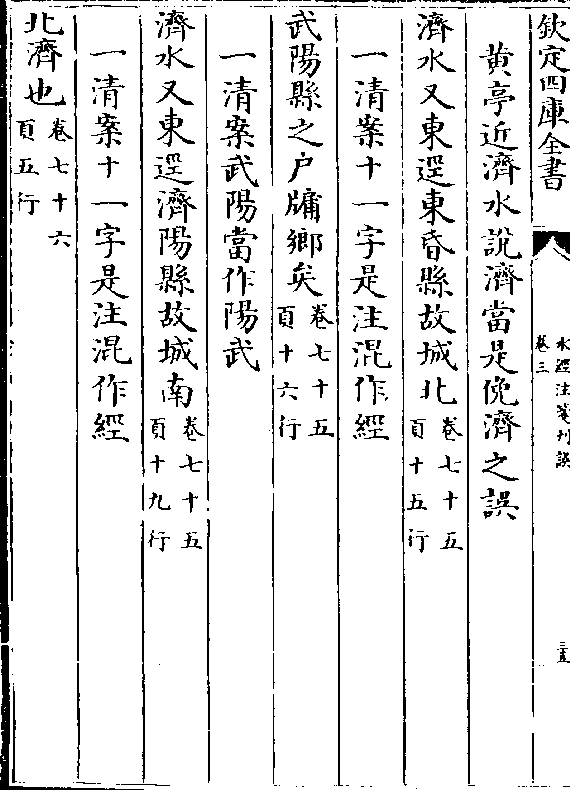 欽定四庫全書
水經注箋刊誤
卷三
三五
黄亭近濟水說濟當是俛濟之誤
濟水又東逕東昏縣故城北卷七十五
頁十五行
一清案十一字是注混作經
武陽縣之户牖鄉矣卷七十五
頁十六行
一清案武陽當作陽武
濟水又東逕濟陽縣故城南卷七十五
頁十九行
一清案十一字是注混作經
北濟也卷七十六
頁五行